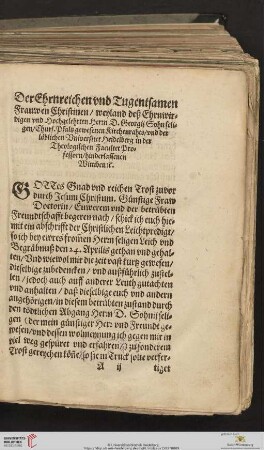 Der Ehrnreichen vnd Tugentsamen
Frauwen Christinen / weyland deß Ehrwir-
digen vnd Hochgelehrten Herrn D. Georgii Sohn seli-
gen / Churf. Pfaltz gewesenen Kirchenraths / vnd der
löblichen Vniversitet Heidelberg in der
Theologischen Facultet Pro-
fessorn / hinderlassenen
Wittwen / ꝛc.
GOTTes Gnad vnd reichen Trost zuvor
durch Jesum Christum. Günstige Fraw
Doctorin / Euwerem vnd der betrübten
Freundtschafft begeren nach / schick ich euch hie-
mit ein abschrifft der Christlichen Leichtpredigt /
so ich bey ewres frommen Herrn seligen Leich vnd
Begräbnuß den 24. Aprilis gethan vnd gehal-
ten / Vnd wiewol mir die zeit vast kurtz gewesen /
dieselbige zubedencken / vnd außführlich zustel-
len / jedoch auch auff anderer Leuth gutachten
vnd anhalten / daß dieselbige euch vnd andern
angehörigen / in diesem betrübten zustand durch
den tödtlichen Abgang Herrn D. Sohns seli-
gen (der mein günstiger Herr vnd Freundt ge-
wesen / vnd dessen wolmeynung ich gegen mir in
viel weg gespüret vnd erfahren /) zu sonderem
Trost gereychen köñe / so sie in Truck solte verfer-
A ij tiget